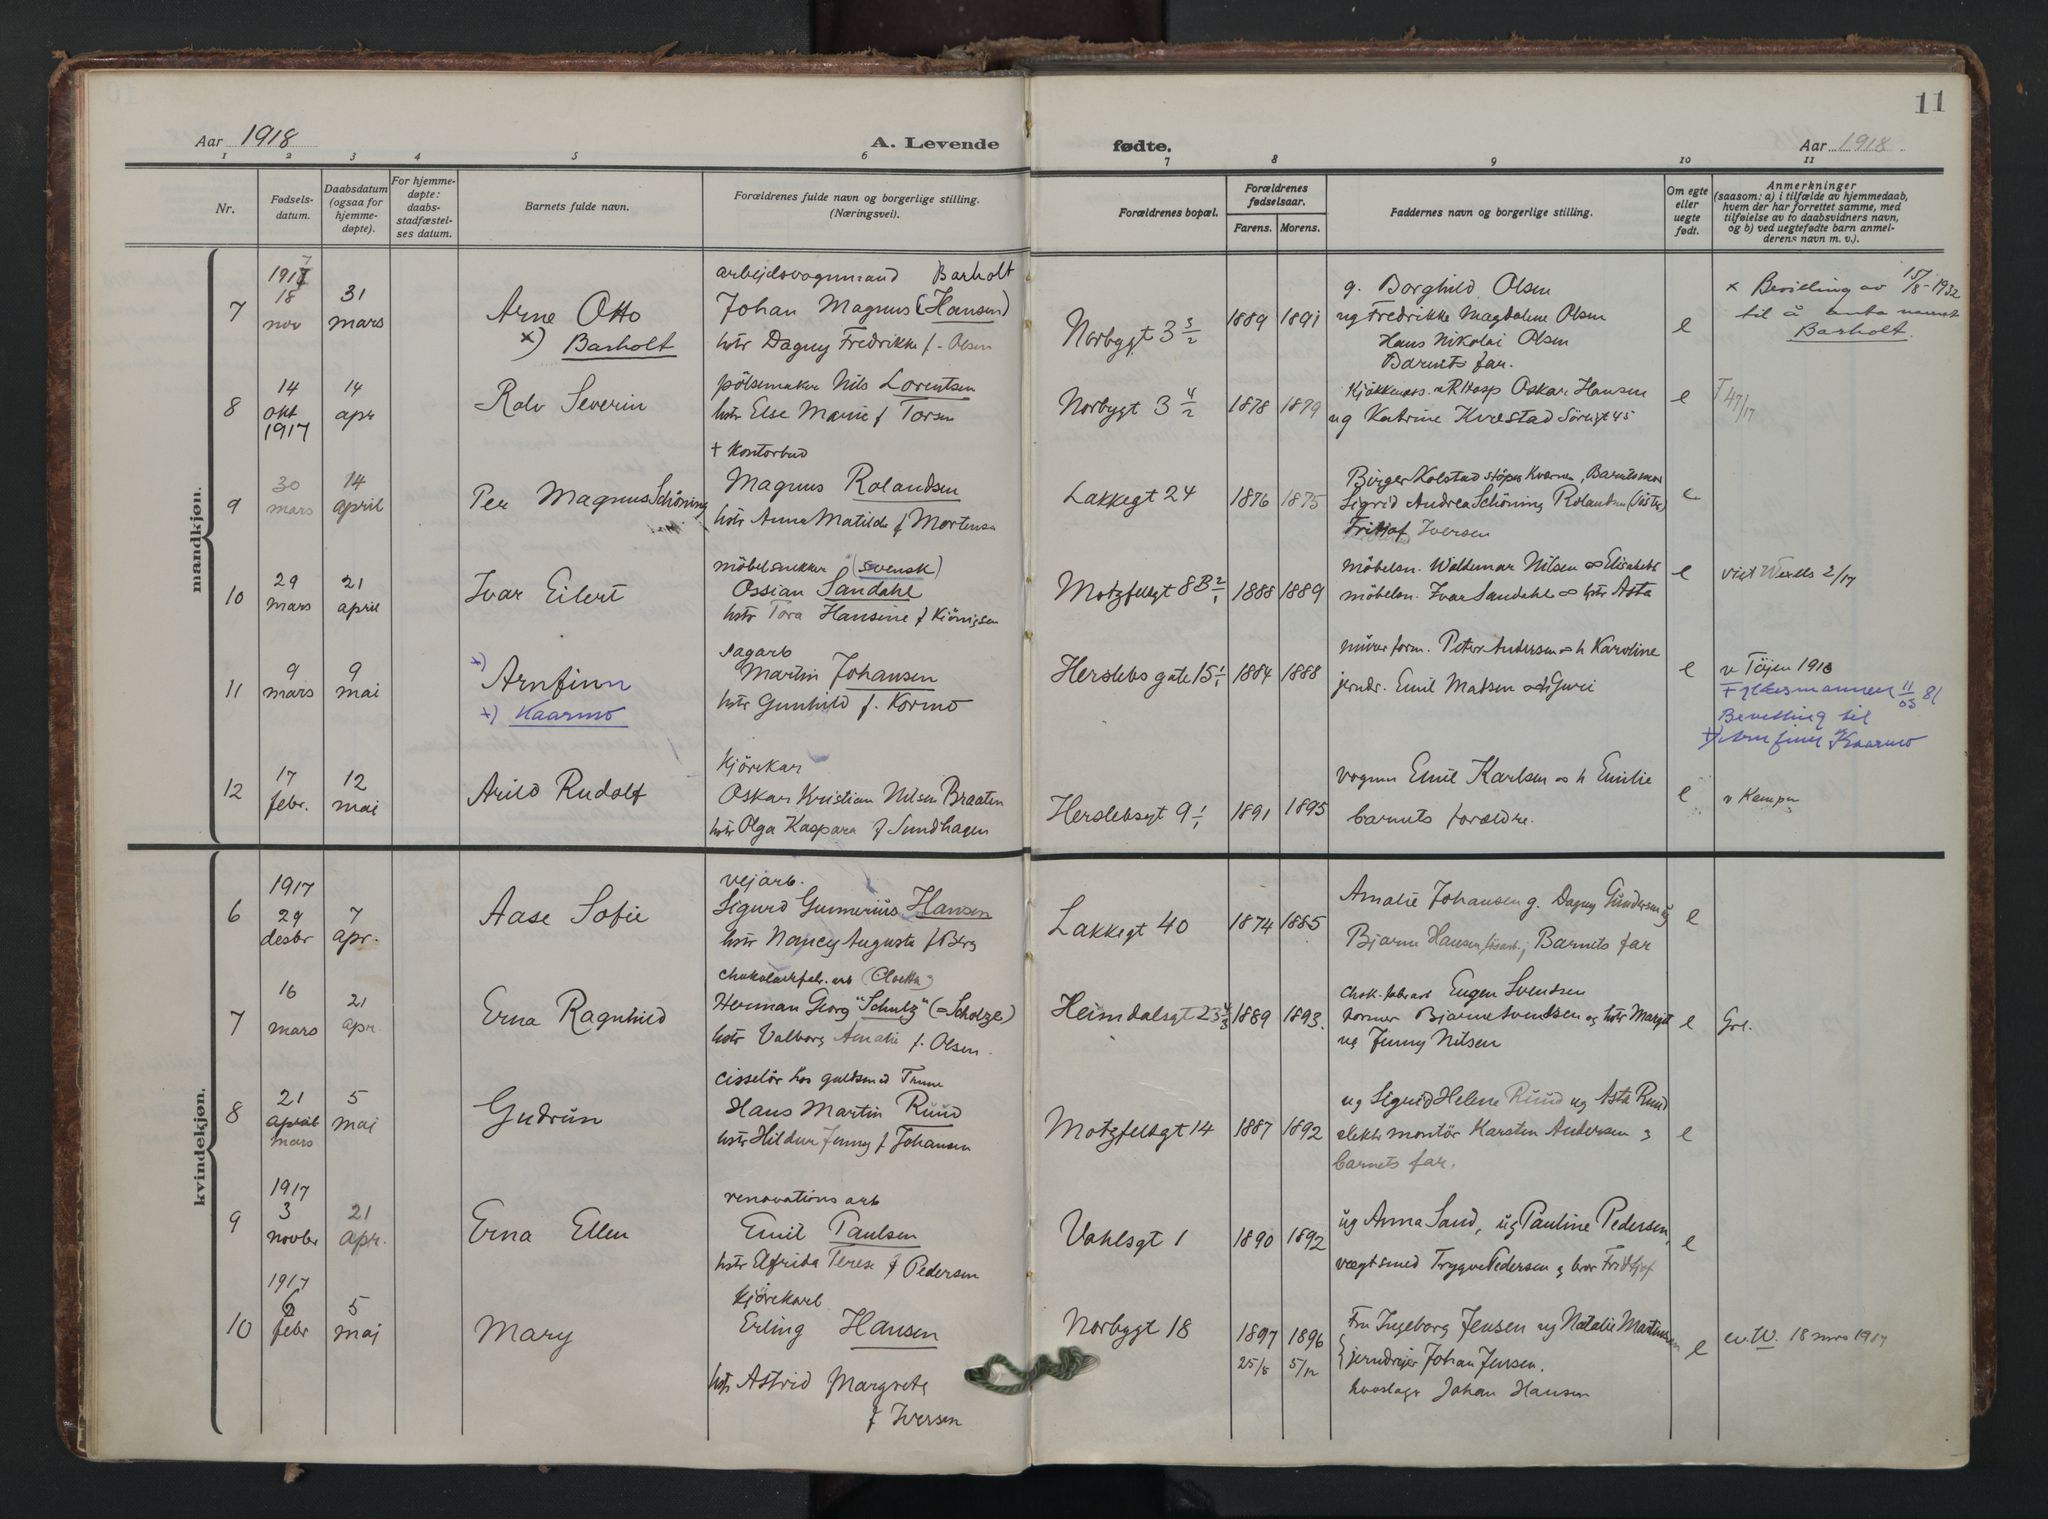 11
Aar 1918
A. Levende
fødte.
Aar 1918.
1 2 3 4 5 6 7 8 9 10 11
Nr.
Fødsels-
datum.
Daabsdatum
(ogsaa for
hjemme-
døpte).
For hjemme-
døpte:
daabs-
stadfæstel-
ses datum.
Barnets fulde navn.
Forældrenes fulde navn og borgerlige stilling.
(Næringsvei).
Forældrenes bopæl.
Forældrenes
fødselsaar.
Farens. Morens.
Faddernes navn og borgerlige stilling.
Om egte
eller
uegte
født.
Anmerkninger
(saasom: a) i tilfælde av hjemmedaab,
hvem der har forrettet samme, med
tilføielse av to daabsvidners navn,
og b) ved uegtefødte barn anmel-
derens navn m. v.).
mandkjøn.
7
1917
18
nov
31
mars
Arne Otto
x) Barholt
arbejdsvognmand Barholt
Johan Magnus (Hansen)
hstr Dagny Fredrikke f. Olsen
Norbygt 3 3/2
1889 1891
g. Borghild Olsen
ug Fredrikke Magdalene Olsen
Hans Nikolai Olsen
Barnets far.
e
x Bevilling av 15/8-1932
til å anta navnet
Barholt.
8
14
okt
1917
14
apr
Rolv Severin
pölsemaker Nils Lorentsen
hstr Else Marie f Torsen
Norbygt 3 4/2
1878 1879
Oskar Hansen
ug Katrine Kvestad Sörligt 45
e
T 47/17
9
30
mars
14
april
Per Magnus Schöning
+ Kontorbud
Magnus Rolandsen
hstr Anna Matilde f Mortensen
Lakkegt 24
1876 1875
Birger Kolstad stöper Kværner, Barnets mor
Sigrid Andrea Schöning Rolandsen (söster)
Frithof Iversen
e
10
29
mars
21
april
Ivar Eilert
möbelsnekker (svensk)
Ossian Sandahl
hstr Tora Hansine f Kiönigsen
Motzfeltgt 8B 2/1
1888 1889
möbelsn. Waldemar Nilsen & Elisabeth
möbelsn. Ivar Sandahl & hstr Asta
e
viet Wexels 2/17
11
9
mars
9
mai
x) Arnfinn
x) Kaarmo
sagarb
Martin Johansen
hstr Gunhild f. Kormo
Herslebs gate 15 1/1
1884 1888
murer form. Peter Andersen & h Karoline
jerndr. Emil Madsen & h Guri
e
v Töjen 1913
Fylkesmannen 11/03 81
Bevilling til
x) Arnfinn Kaarmo
12
17
febr.
12
mai
Arild Rudolf
kjörekar
Oskar Kristian Nilsen Braaten
hstr Olga Kaspara f Sundhagen
Herslebsgt 9 1/1
1891 1895
vognm Emil Karlsen & h Emilie
barnets forældre.
e
v Kampen
kvindekjøn.
6
1917
29
desbr
7
apr.
Aase Sofie
vejarb.
Sigurd Gunnerius Hansen
hstr Nancy Augusta f Berg
Lakkegt 40
1874 1885
Amalie Johansen g. Dagny Gundersen ug
Bjarne Hansen, Barnets far
e
7
16
mars
21
apr.
Erna Ragnhild
chokoladefabr. arb (Cloetta)
Herman Georg "Schulz" (=Scholze)
hstr Valborg Amalie f. Olsen
Heimdalsgt 23 4/3
1889 1893.
chok. fabrarb Eugen Svendsen
former Bjarne Svendsen og hstr Margit
ug Jenny Nilsen
e
Grl.
8
21
april
mars
5
mai
Gudrun
cisselör hos guldsmed Thune
Hans Martin Ruud
hstr Hildur Jenny f Johansen
Motzfeltsgt 14
1887 1892
ug Sigrid Helene Ruud ug Asta Ruud
elektr montör Karsten Andersen &
barnets far.
e
9
1917
3
novbr
21
apr.
Erna Ellen
renovations arb
Emil Paulsen
hstr Elfrida Terese f Pedersen
Vahlsgt 1
1890 1892
ug Anna Sand, ug Pauline Pedersen,
vægtsmed Trygve Pedersen & bror Fridtjof
e
10
1917
6
febr
5
mai
Mary
kjörekarl
Erling Hansen
hstr Astrid Margrete
f Iversen
Norbygt 18
1897 1896
25/8 5/12
Fru Ingeborg Jensen ug Natalie Martinsen
jerndrejer Johan Jensen.
hovslager Johan Hansen
e
ev. W. 18 mrs 1917